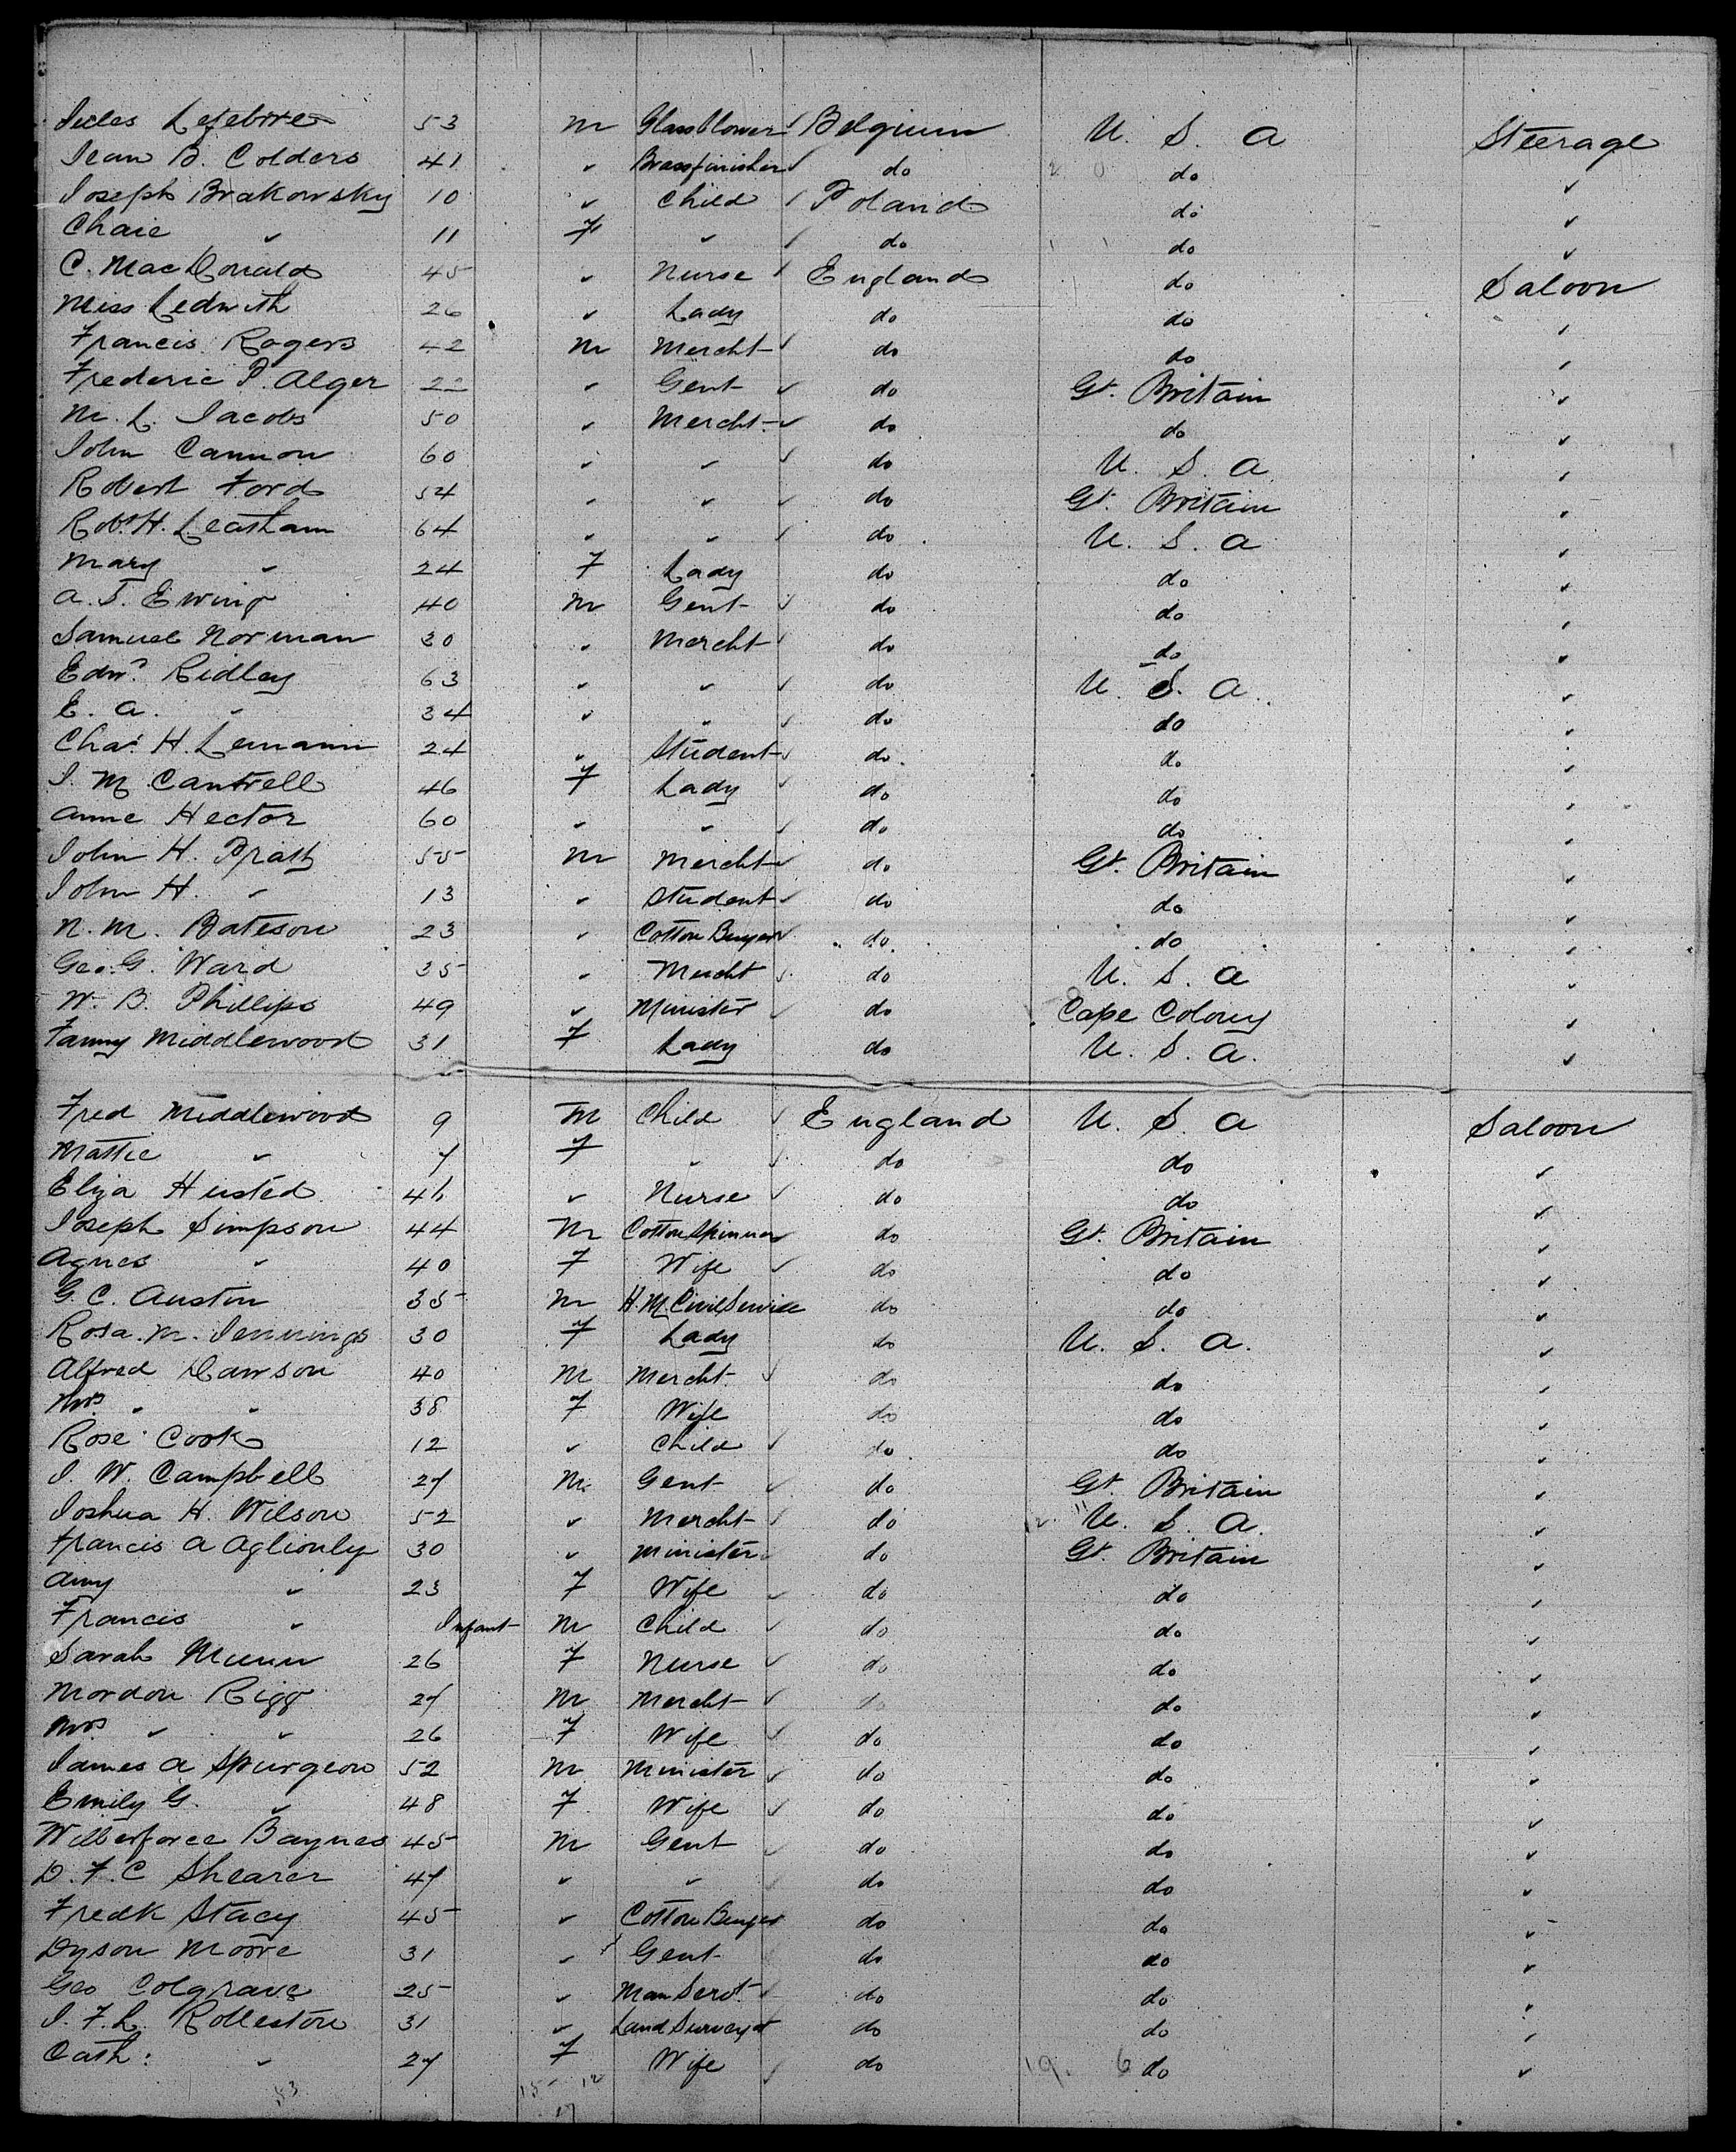 Jules Lefebvre 53 m Glassblower Belgium U. S. A Steerage
Jean B. Colders 41 " Brassfinisher do do "
Joseph Brakowsky 10 " Child Poland do "
Chaie " 11 F " do do "
C. MacDonald 45 " Nurse England do Saloon
Miss Ledwith 26 " Lady do do "
Francis Rogers 42 m Mercht do do "
Frederic P. Alger 22 " Gent do Gt. Britain "
M. L. Jacobs 50 " Mercht do do "
John Cannon 60 " " do U. S. A "
Robert Ford 54 " " do Gt. Britain "
Robt. H. Leatham 64 " " do U. S. A "
Mary " 24 F Lady do do "
A. T. Ewing 40 m Gent do do "
Samuel Norman 30 " Mercht do do "
Edwd. Ridley 63 " " do U. S. A. "
E. A. " 34 " " do do "
Chas. H. Lemann 24 " Student do do "
J. M Cantrell 46 F Lady do do "
Anne Hector 60 " " do do "
John H. Pratt 55 m Mercht do Gt. Britain "
John H. " 13 " Student do do "
N. M. Bateson 23 " Cotton Buyer do do "
Geo. G. Ward 35 " Mercht do U. S. A "
W. B. Phillips 49 " Minister do Cape Colony "
Fanny Middlewood 31 F Lady do U. S. A. "
Fred Middlewood 9 m Child England U. S. A Saloon
Mattie " 7 F " do do "
Eliza Husted 46 " Nurse do do "
Joseph Simpson 44 m Cotton Spinner do Gt. Britain "
Agnes " 40 F Wife do do "
G. C. Austin 35 m H. M. Civil Service do do "
Rosa. M. Jennings 30 F Lady do U. S. A. "
Alfred Dawson 40 m Mercht. do do "
Mrs " " 38 F Wife do do "
Rose Cook 12 " Child do do "
J. W. Campbell 27 m. Gent do Gt. Britain "
Joshua H. Wilson 52 " Mercht do U. S. A. "
Francis A Aglionby 30 " Minister do Gt. Britain "
Amy " 23 F Wife do do "
Francis " Infant m Child do do "
Sarah Munn 26 F Nurse do do "
Mordon Rigg 27 m Mercht do do "
Mrs " " 26 F Wife do do "
James A Spurgeon 52 m Minister do do "
Emily G. " 48 F Wife do do "
Wilberforce Baynes 45 m Gent do do "
D. F. C Shearer 47 " " do do "
Fredk Stacy 45 " Cotton Buyer do do "
Dyson Moore 31 " Gent do do "
Geo Colgrave 25 " Man Servt. do do "
J. F. L. Rolleston 31 " Land Surveyor do do "
Cath: " 27 F Wife do do "